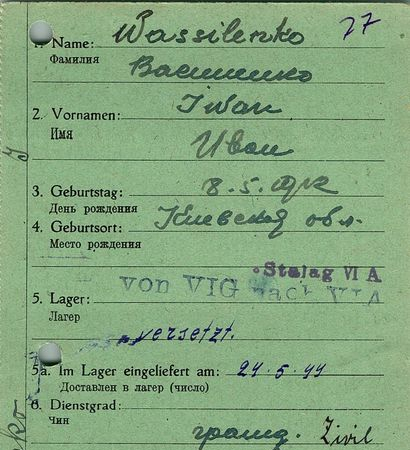 77
1. Name: Wassilenko
Фамилия Василенко
2. Vornamen: Iwan
Имя Иван
3. Geburtstag: 8.5.
День рождения
4. Geburtsort: Киевская обл.
Место рождения
Stalag VI A
von VI G nach VI A
5. Lager:
Лагер
versetzt.
5a. Im Lager eingeliefert am: 24.5.44
Доставлен в лагер (число)
6. Dienstgrad:
Чин гражд. Zivil